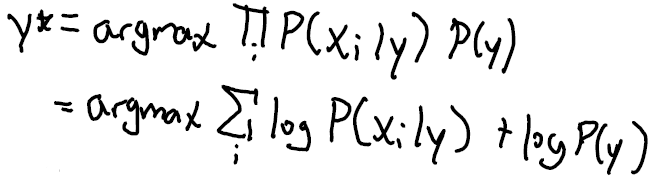 y* = argmax ∏ᵢ P(xᵢ|y) P(y)
= argmax ∑ᵢ log P(xᵢ|y) + log P(y)